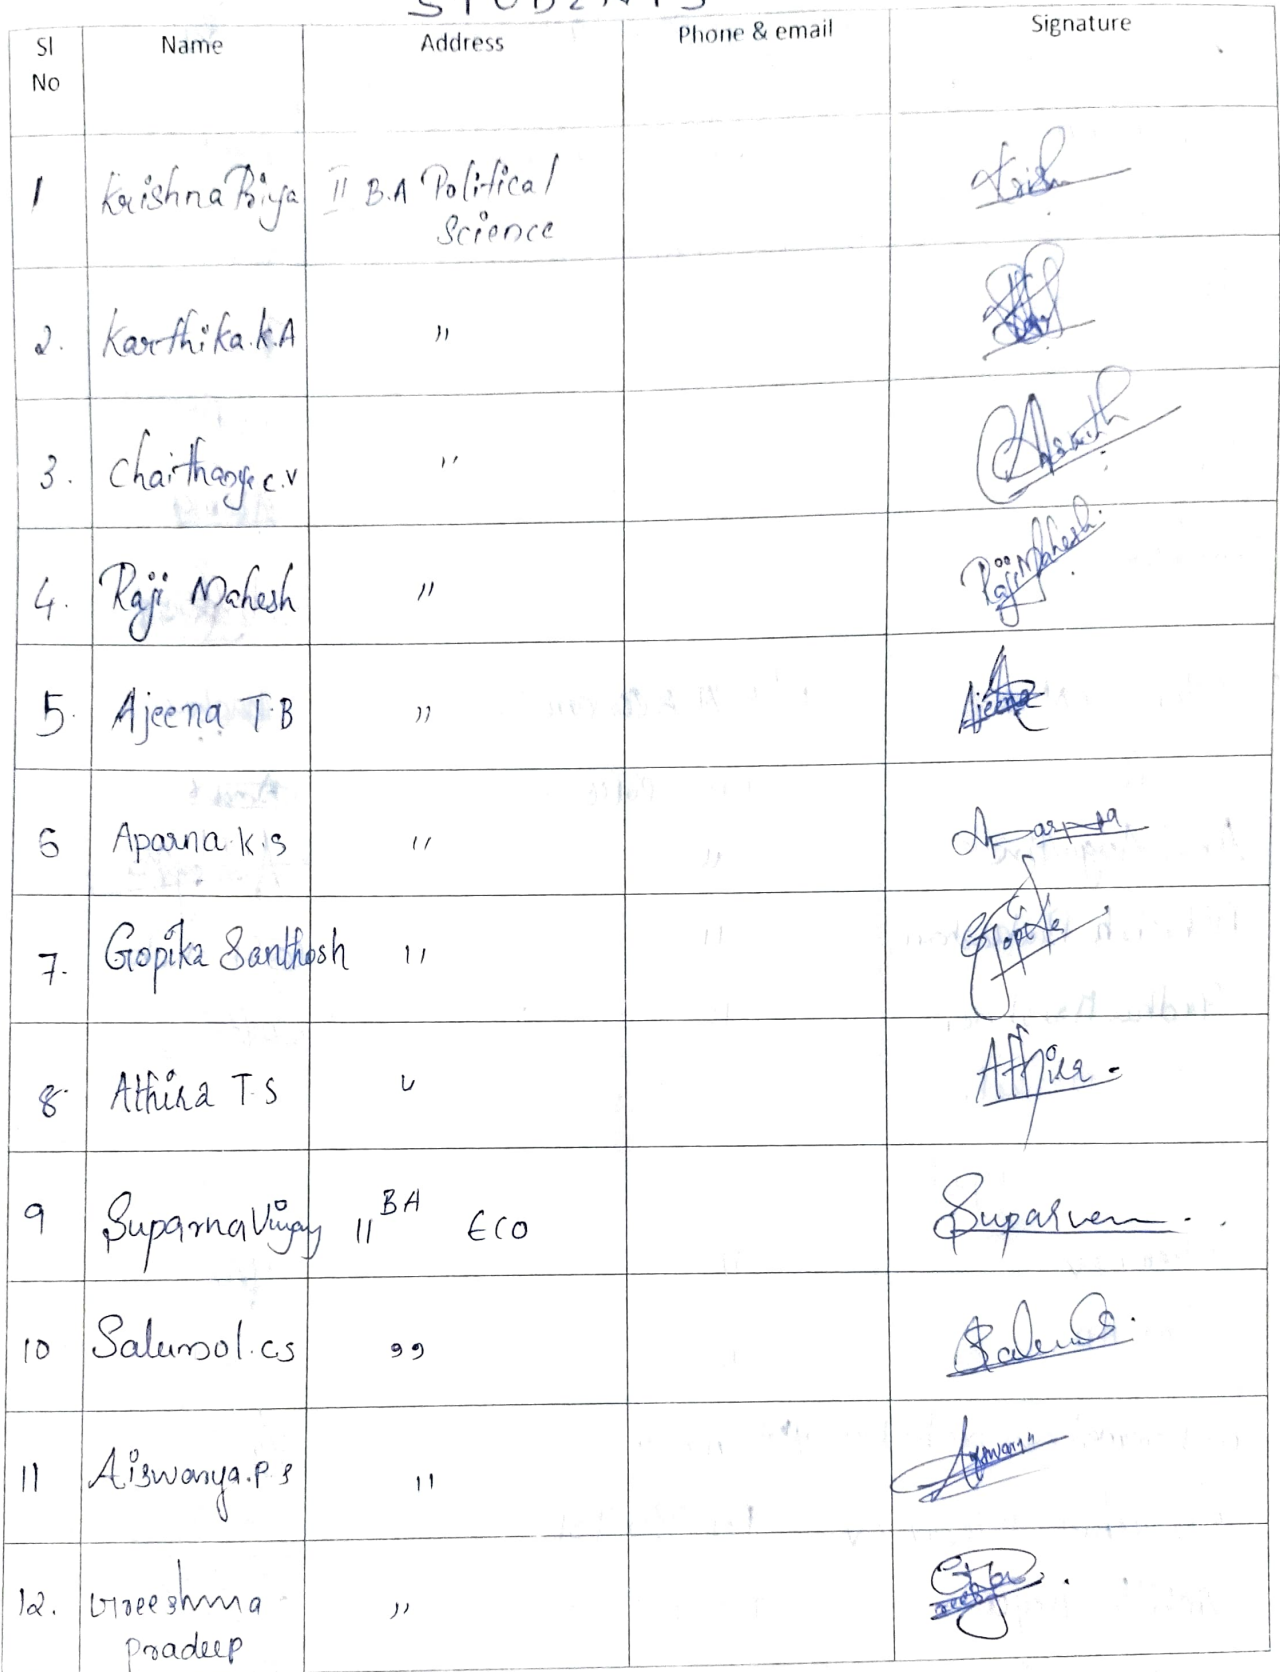 STUDENTS
Sl No Name Address Phone & email Signature
1 Krishna Priya II B.A Political Science
2. Karthika.K.A "
3. Chaithanya C.V "
4. Raji Mahesh " Raji Mahesh
5. Ajeena T.B " Ajeena
6 Aparna K.S " Aparna
7. Gopika Santhosh "
8. Athira T.S " Athira
9 Suparna Vijay II BA ECO
10 Salumol.C.S "
11 Aiswarya.P.S "
12. Greeshma Pradeep "